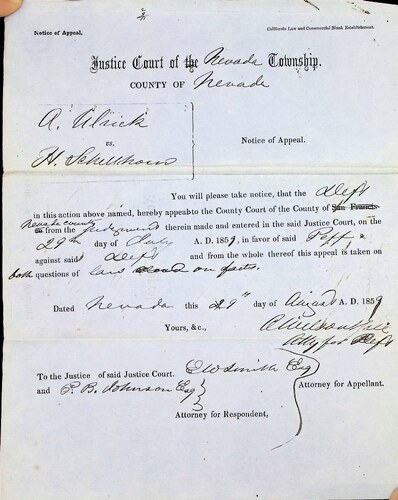 Notice of Appeal.
California Law and Commercial Blank Establishment.
Justice Court of the Nevada Township.
COUNTY OF Nevada
A. Ulrick
vs.
H. Schellhorn
Notice of Appeal.
You will please take notice, that the Deft
in this action above named, hereby appeal to the County Court of the County of San Francis-
Nevada county
co from the Judgment therein made and entered in the said Justice Court, on the
29th day of July A. D. 1859, in favor of said Peff, &
against said Deft and from the whole thereof this appeal is taken on
both questions of law and on facts.
Dated Nevada this 29th day of August A. D. 1859
Yours, &c.,
Atty for Deft
To the Justice of said Justice Court. E W Smith Esq
and P. B. Johnson Esq
Attorney for Appellant.
Attorney for Respondent,